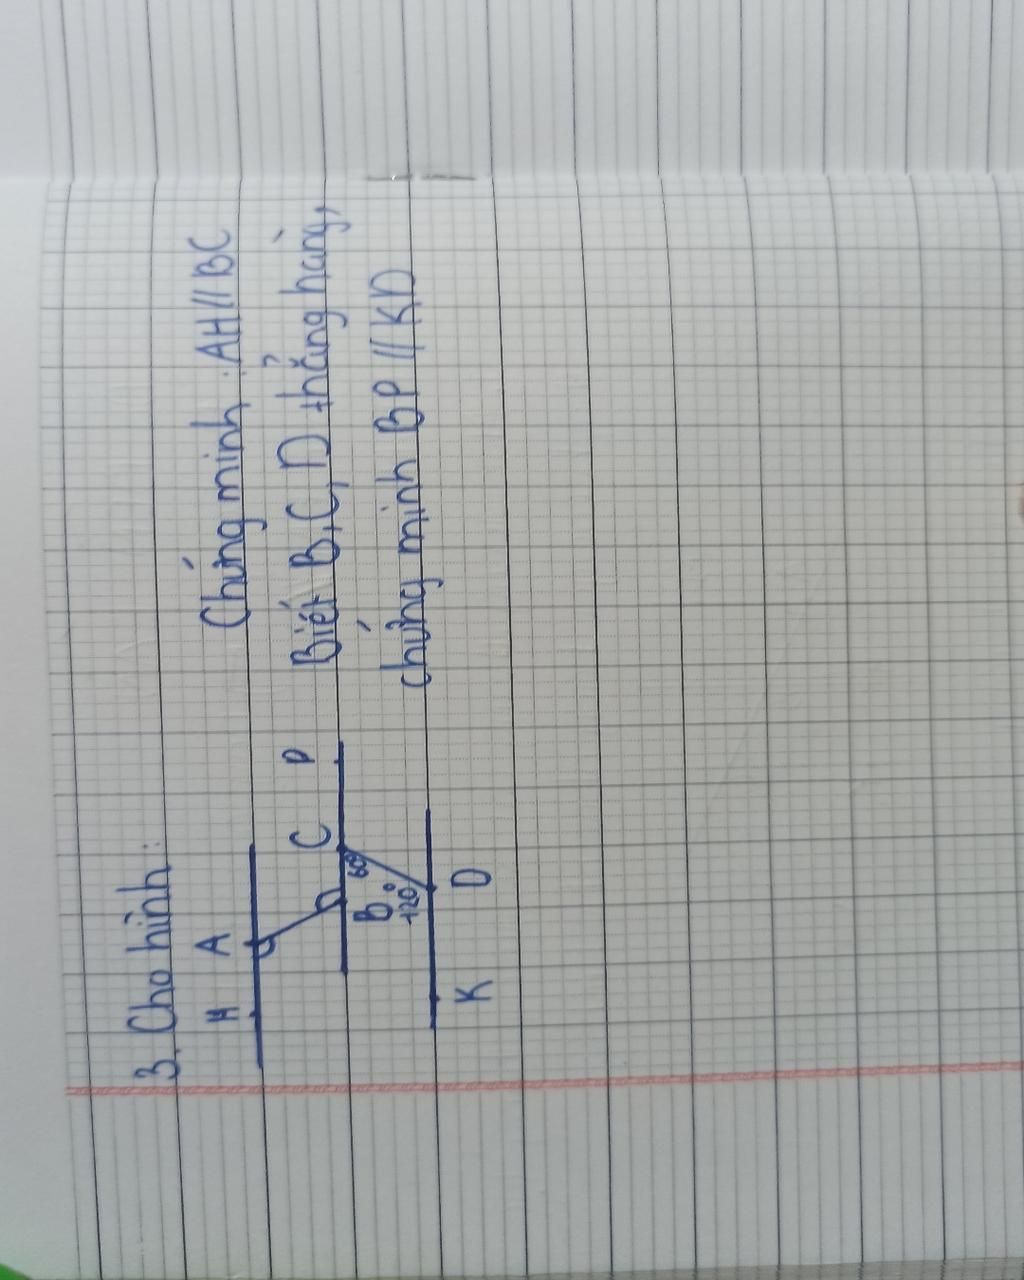 3. Cho hình:
H A
Chứng minh: AH // BC
C P
Biết B, C, D thẳng hàng,
B 60°
120°
chứng minh BP // KD
K D